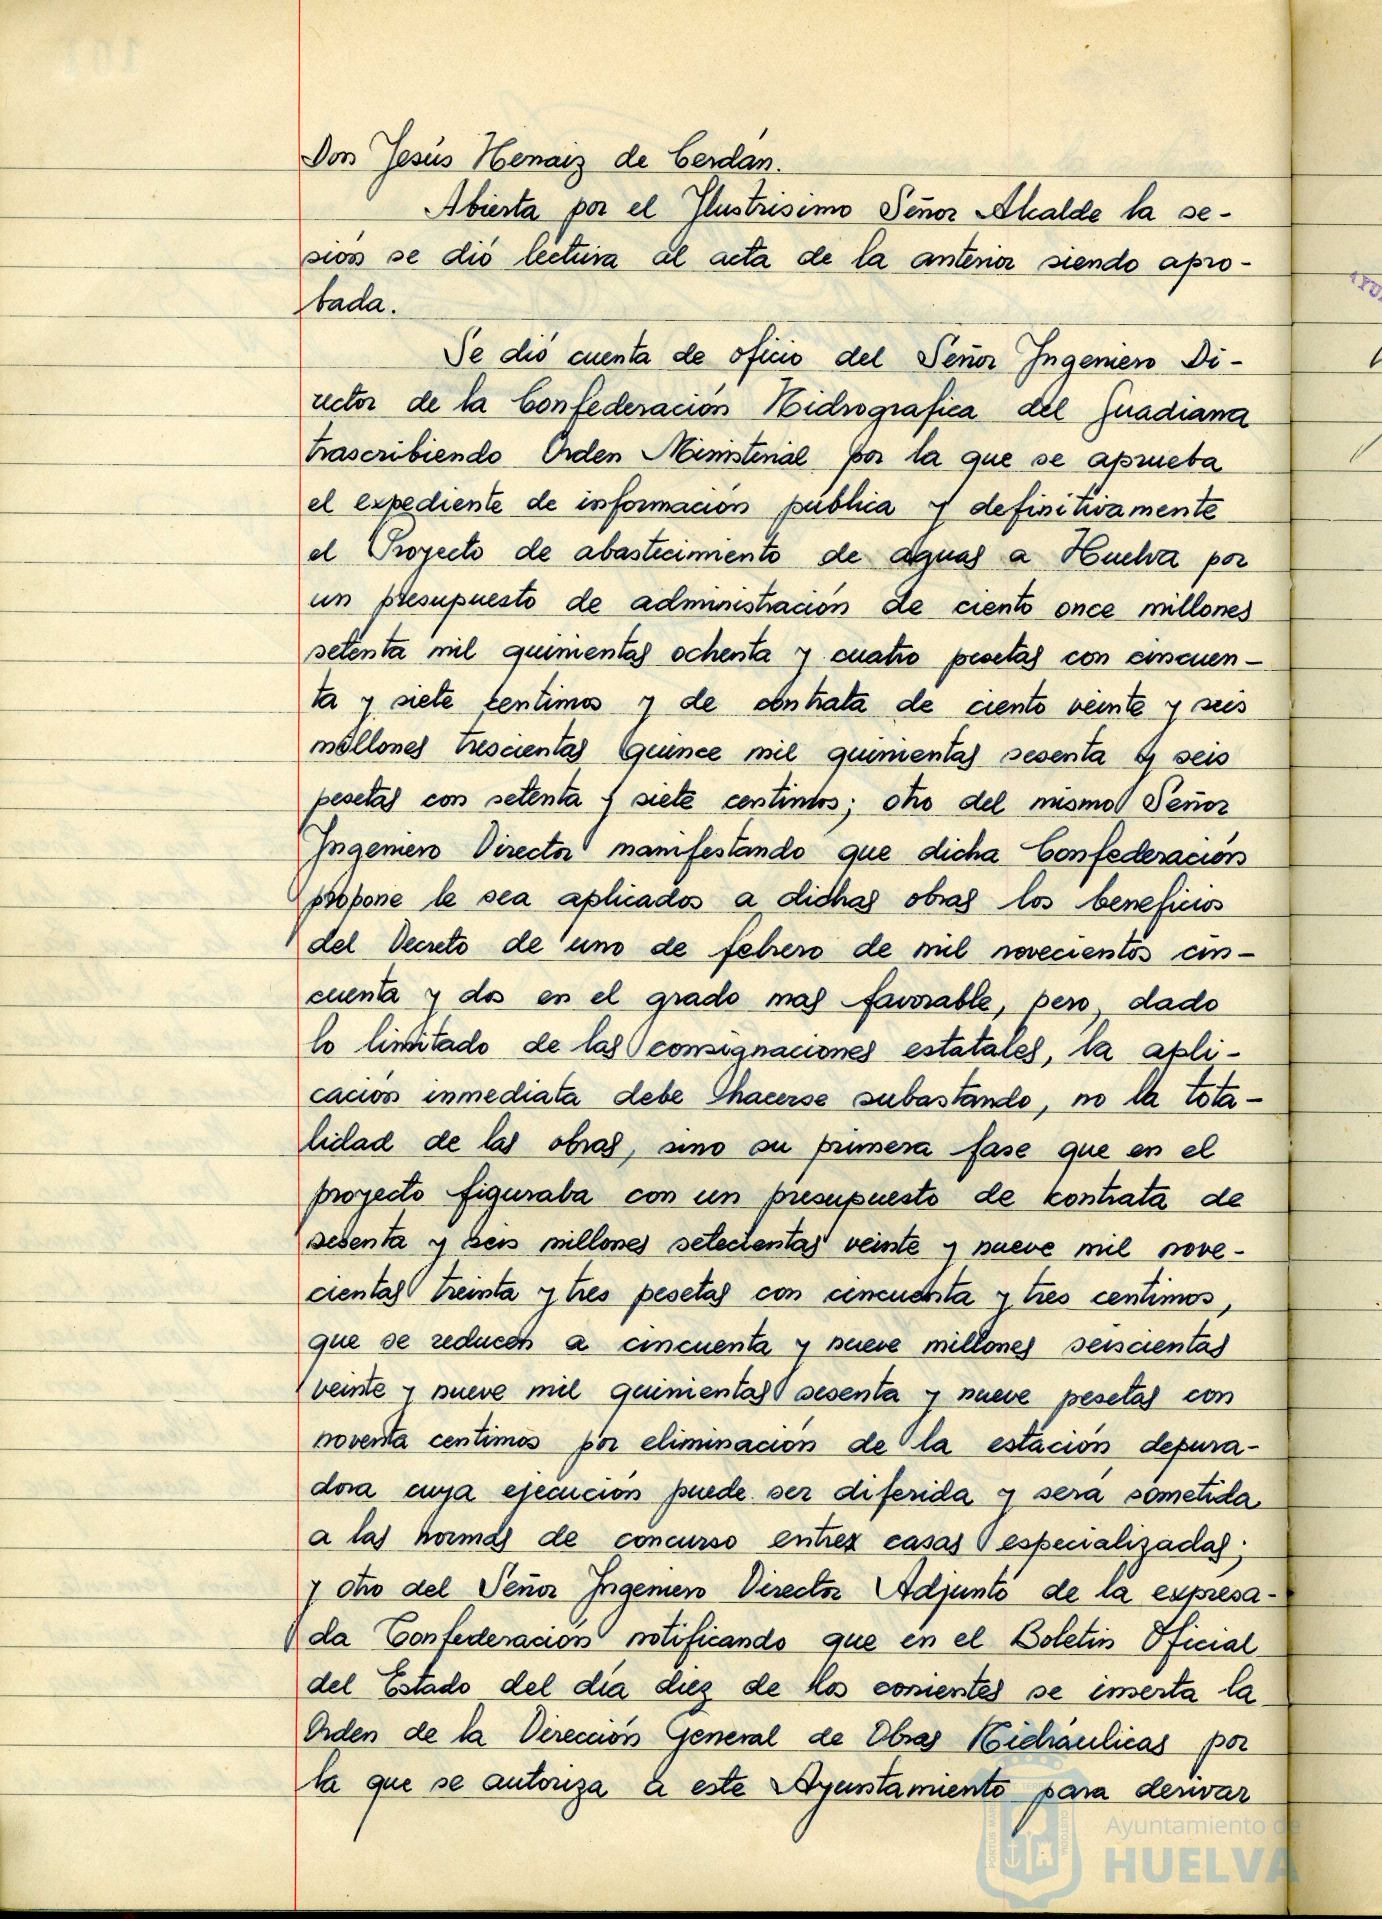 Don Jesús Henaiz de Cerdán.
Abierta por el Ilustrisimo Señor Alcalde la se-
sión se dió lectura al acta de la anterior siendo apro-
bada.
Se dió cuenta de oficio del Señor Ingeniero Di-
rector de la Confederación Hidrografica del Guadiana
trascribiendo Orden Ministerial por la que se aprueba
el expediente de información pública y definitivamente
el Proyecto de abastecimiento de aguas a Huelva por
un presupuesto de administración de ciento once millones
setenta mil quinientas ochenta y cuatro pesetas con cincuen-
ta y siete centimos y de contrata de ciento veinte y seis
millones trescientas quince mil quinientas sesenta y seis
pesetas con setenta y siete centimos; otro del mismo Señor
Ingeniero Director manifestando que dicha Confederación
propone le sea aplicados a dichas obras los beneficios
del Decreto de uno de febrero de mil novecientos cin-
cuenta y dos en el grado mas favorable, pero, dado
lo limitado de las consignaciones estatales, la apli-
cación inmediata debe hacerse subastando, no la tota-
lidad de las obras, sino su primera fase que en el
proyecto figuraba con un presupuesto de contrata de
sesenta y seis millones setecientas veinte y nueve mil nove-
cientas treinta y tres pesetas con cincuenta y tres centimos,
que se reducen a cincuenta y nueve millones seiscientas
veinte y nueve mil quinientas sesenta y nueve pesetas con
noventa centimos por eliminación de la estación depura-
dora cuya ejecución puede ser diferida y será sometida
a las normas de concurso entre casas especializadas;
y otro del Señor Ingeniero Director Adjunto de la expresa-
da Confederación notificando que en el Boletin Oficial
del Estado del día diez de los corrientes se inserta la
Orden de la Dirección General de Obras Hidráulicas por
la que se autoriza a este Ayuntamiento para derivar
Ayuntamiento de
HUELVA